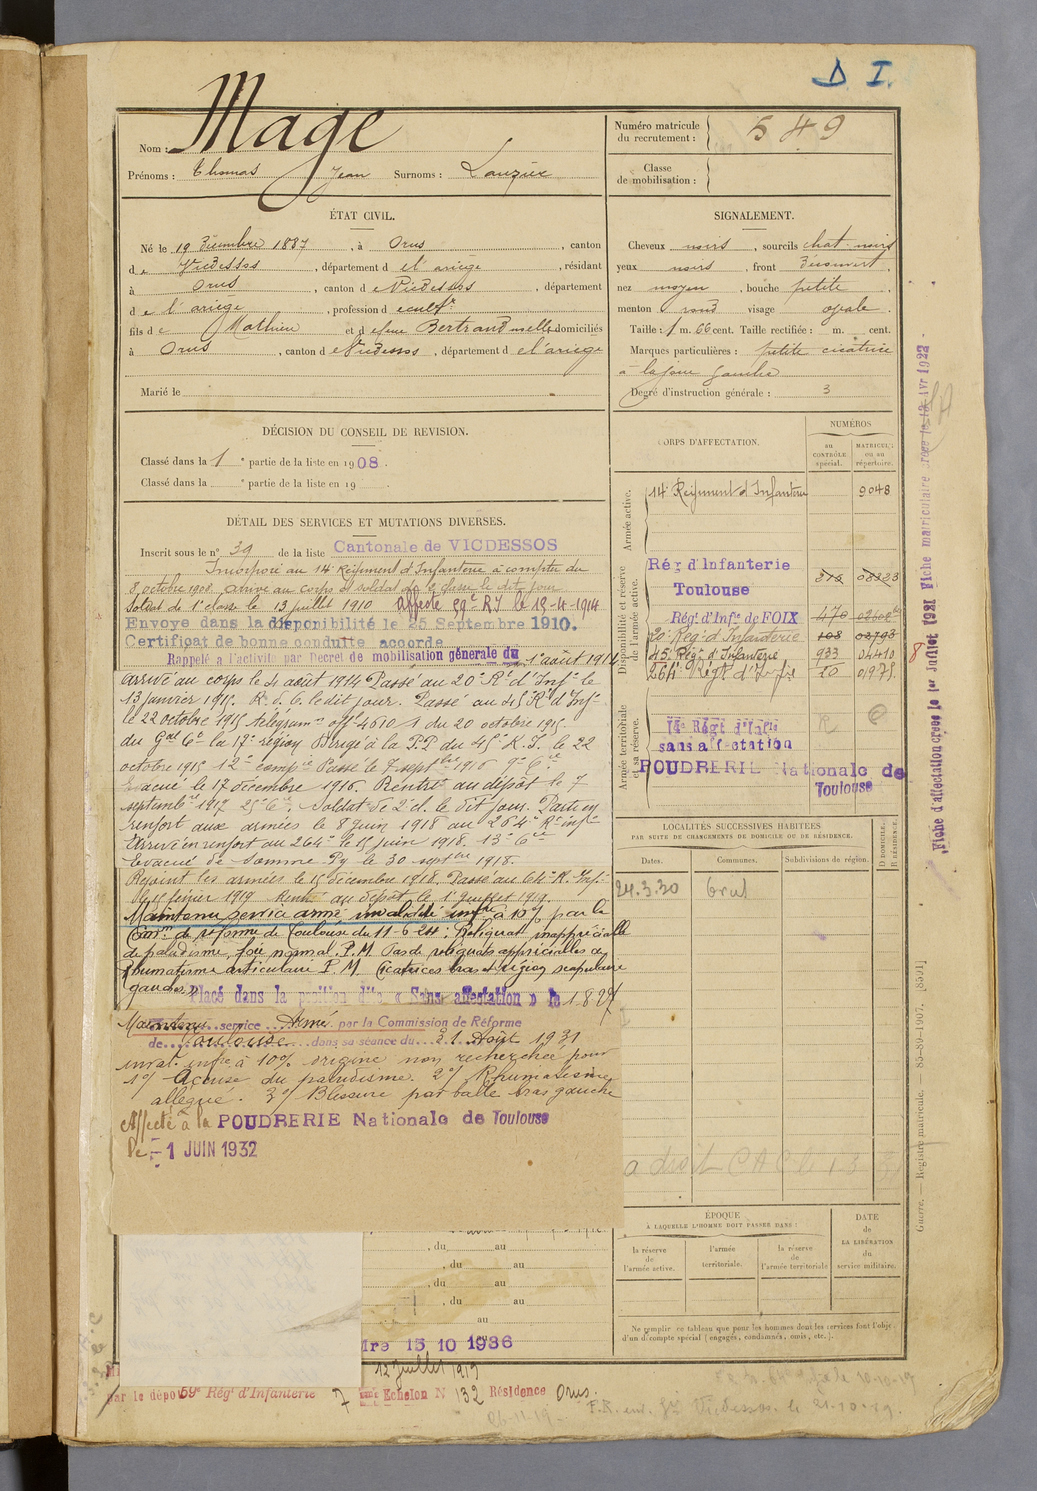 D I.
Nom : Mage
Prénoms : Thomas Jean Surnoms : Lauzié
Numéro matricule du recrutement : 549
Classe de mobilisation :
ÉTAT CIVIL.
Né le 19 Décembre 1887, à Orus, canton
de Vicdessos, département de l'ariège, résidant
à Orus, canton de Vicdessos, département
de l'ariège, profession de cultr
fils de Mathieu et de feue Bertrand domiciliés
à Orus, canton de Vicdessos, département de l'ariège
Marié le
SIGNALEMENT.
Cheveux noirs, sourcils chat-noirs
yeux noirs, front découvert,
nez moyen, bouche petite,
menton rond visage ovale.
Taille : 1 m. 66 cent. Taille rectifiée : m. cent.
Marques particulières : petite cicatrice
à la joue gauche
Degré d'instruction générale : 3
DÉCISION DU CONSEIL DE REVISION.
Classé dans la 1e partie de la liste en 1908.
Classé dans la e partie de la liste en 19 .
DÉTAIL DES SERVICES ET MUTATIONS DIVERSES.
Inscrit sous le n° 39 de la liste Cantonale de VICDESSOS
Incorporé au 14e Régiment d'Infanterie à compter du
8 octobre 1908, arrivé au corps et soldat de 2e classe le dit jour
Soldat de 1e classe le 13 juillet 1910 affecté 59e RI le 15-4-1914
Envoyé dans la disponibilité le 25 Septembre 1910.
Certificat de bonne conduite accordé
Rappelé à l'activité par Décret de mobilisation générale du 1er août 1914
arrivé au corps le 4 août 1914 Passé au 20e Rt d'Infie le
13 janvier 1915. R. d. C. le dit jour. Passé au 45 Rt d'Infie
le 22 octobre 1915 télégramme offel 4610/1 du 20 octobre 1915
du Gal Ct la 17e région Dirigé à la P.P du 45e R.I. le 22
octobre 1915 12e compie Passé le 7 septbre 1916 9e Cie
Evacué le 17 décembre 1916. Rentré au dépôt le 7
septembre 1917 25e Cie. Soldat de 2e cl. le dit jour. Parti en
renfort aux armées le 8 juin 1918 au 264e Rt infie
Arrivé en renfort au 264e le 15 juin 1918. 13e Cie
Evacué de Somme-Py le 30 septbre 1918.
Rejoint les armées le 15 décembre 1918. Passé au 64e R. Infie
le 15 février 1919 Rentré au dépôt le 1er juillet 1919.
Maintenu service armé, invalidité infre à 10% par la
Comon de réforme de Toulouse du 11-6-20 : Reliquat inappréciable
de paludisme, foie normal. P. M. Pas de reliquats appréciables de
Rhumatisme articulaire P. M Cicatrices bras et région scapulaire
gauches
Placé dans la position dite « Sans affectation » le
Maintenu service Armé par la Commission de Réforme
de Toulouse dans sa séance du 31 Août 1931
inval. infre à 10% origine non recherchée pour
1°/ Accuse du paludisme. 2°/ Rhumatisme
allégué. 3°/ Blessure par balle bras gauche
Affecté à la POUDRERIE Nationale de Toulouse
Le - 1 JUIN 1932
CORPS D'AFFECTATION.
NUMÉROS
au CONTRÔLE spécial.
MATRICULE ou au répertoire.
Armée active.
14e Régiment d'Infanterie 9048
Disponibilité et réserve de l'armée active.
Rég d'Infanterie
Toulouse
Rég. d'Infie de FOIX
20e Reg. d'Infanterie 108 03793
45. Régt d'Infanterie 933 04410
264e Régt d'Infie 10 01975.
Armée territoriale et sa réserve.
14e Régt d'Infie
sans affectation
POUDRERIE Nationale de
Toulouse
LOCALITÉS SUCCESSIVES HABITÉES
PAR SUITE DE CHANGEMENTS DE DOMICILE OU DE RÉSIDENCE.
Dates. Communes. Subdivisions de région. D DOMICILE. R RÉSIDENCE.
24.3.20
ÉPOQUE
À LAQUELLE L'HOMME DOIT PASSER DANS :
la réserve de l'armée active.
l'armée territoriale.
la réserve de l'armée territoriale
DATE de LA LIBÉRATION du service militaire.
Ne remplir ce tableau que pour les hommes dont les services font l'objet
d'un décompte spécial (engagés, condamnés, omis, etc.).
, du au
, du au
, du au
, du au
au
15 10 1936
12 juillet 1919
par le dépôt 59e Régt d'Infanterie 7 Echelon N° 132 Résidence Orus.
26-11-19
F.R. env. Gie Vicdessos. le 21-10-19.
Fiche d'affectation créée le 1er Juillet 1931 Fiche matriculaire créée le 13 Avr 1922
8
Guerre. — Registre matricule. — 85-89-1907. [8501]